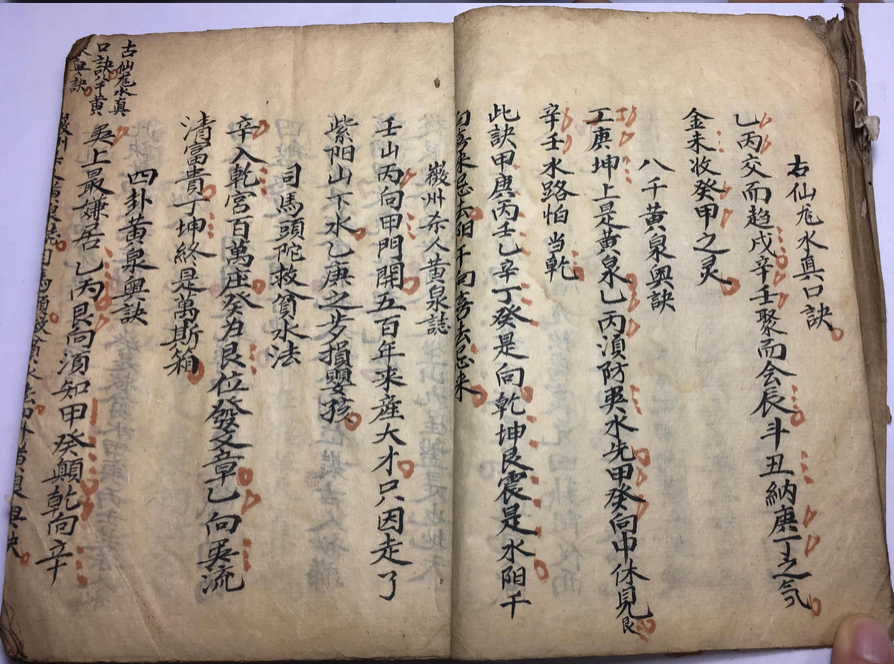 古仙尨水真口訣
乙丙交而趋戍辛壬聚而会辰斗丑納庚丁之気
金未收癸甲之灵
八千黄泉奥訣
丁庚坤上是黄泉乙丙湏防巽水先甲癸向中休見艮
辛壬水路怕当乾
此訣甲庚丙壬乙辛丁癸是向乾坤艮震是水阳干
向旁来忌去阴干向旁去忌来
徽州奈人黄泉誌
壬山丙向甲門開五百年来産大才只因走了
紫阳山下水乙庚之步損嬰孩
司馬頭陀救貧水法
辛入乾宮百萬庄癸归艮位發文章乙向巽流
清富貴丁坤終是萬斯箱
四卦黄泉奥訣
巽上最嫌居乙丙艮向湏知甲癸顛乾向辛
古仙尨水真
口訣八千黄
泉奥訣